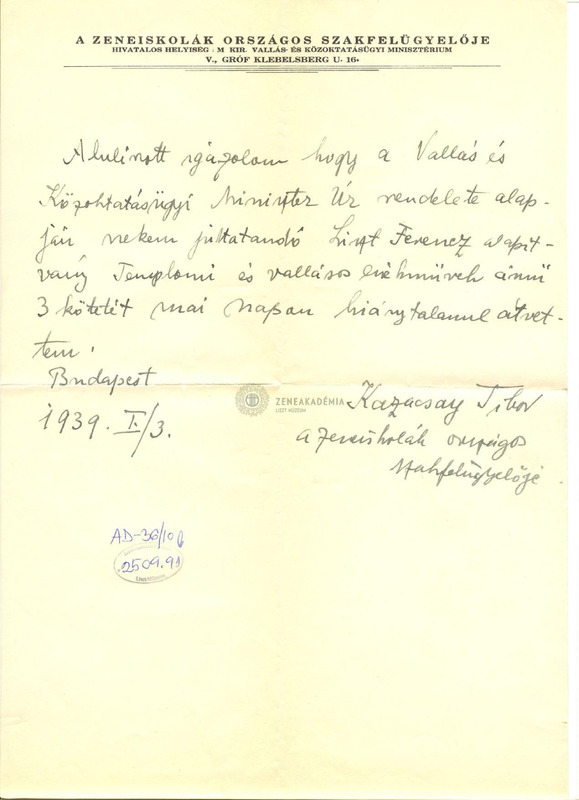 A ZENEISKOLÁK ORSZÁGOS SZAKFELÜGYELŐJE
HIVATALOS HELYISÉG: M KIR. VALLÁS- ÉS KÖZOKTATÁSÜGYI MINISZTÉRIUM
V., GRÓF KLEBELSBERG U. 16.
Alulirott igazolom hogy a Vallás és
Közoktatásügyi Miniszter Úr rendelete alap-
ján nekem juttatandó Liszt Ferenc alapit-
vány Templomi és vallásos énekművek című
3 kötetét mai napon hiánytalanul átvet-
tem.
Budapest
1939. I./3.
ZENEAKADÉMIA
LISZT MÚZEUM
Kazacsay Tibor
a zeneiskolák országos
szakfelügyelője
AD-36/10
2509.91